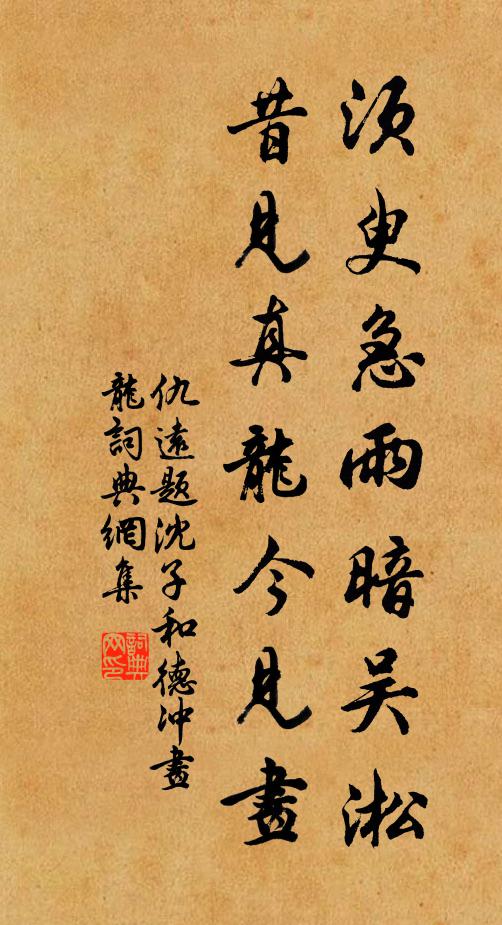 須臾急雨暗吴淞
昔見真龍今見畫
仇遠題沈子和德冲畫
龍詞典網集
詞典網印